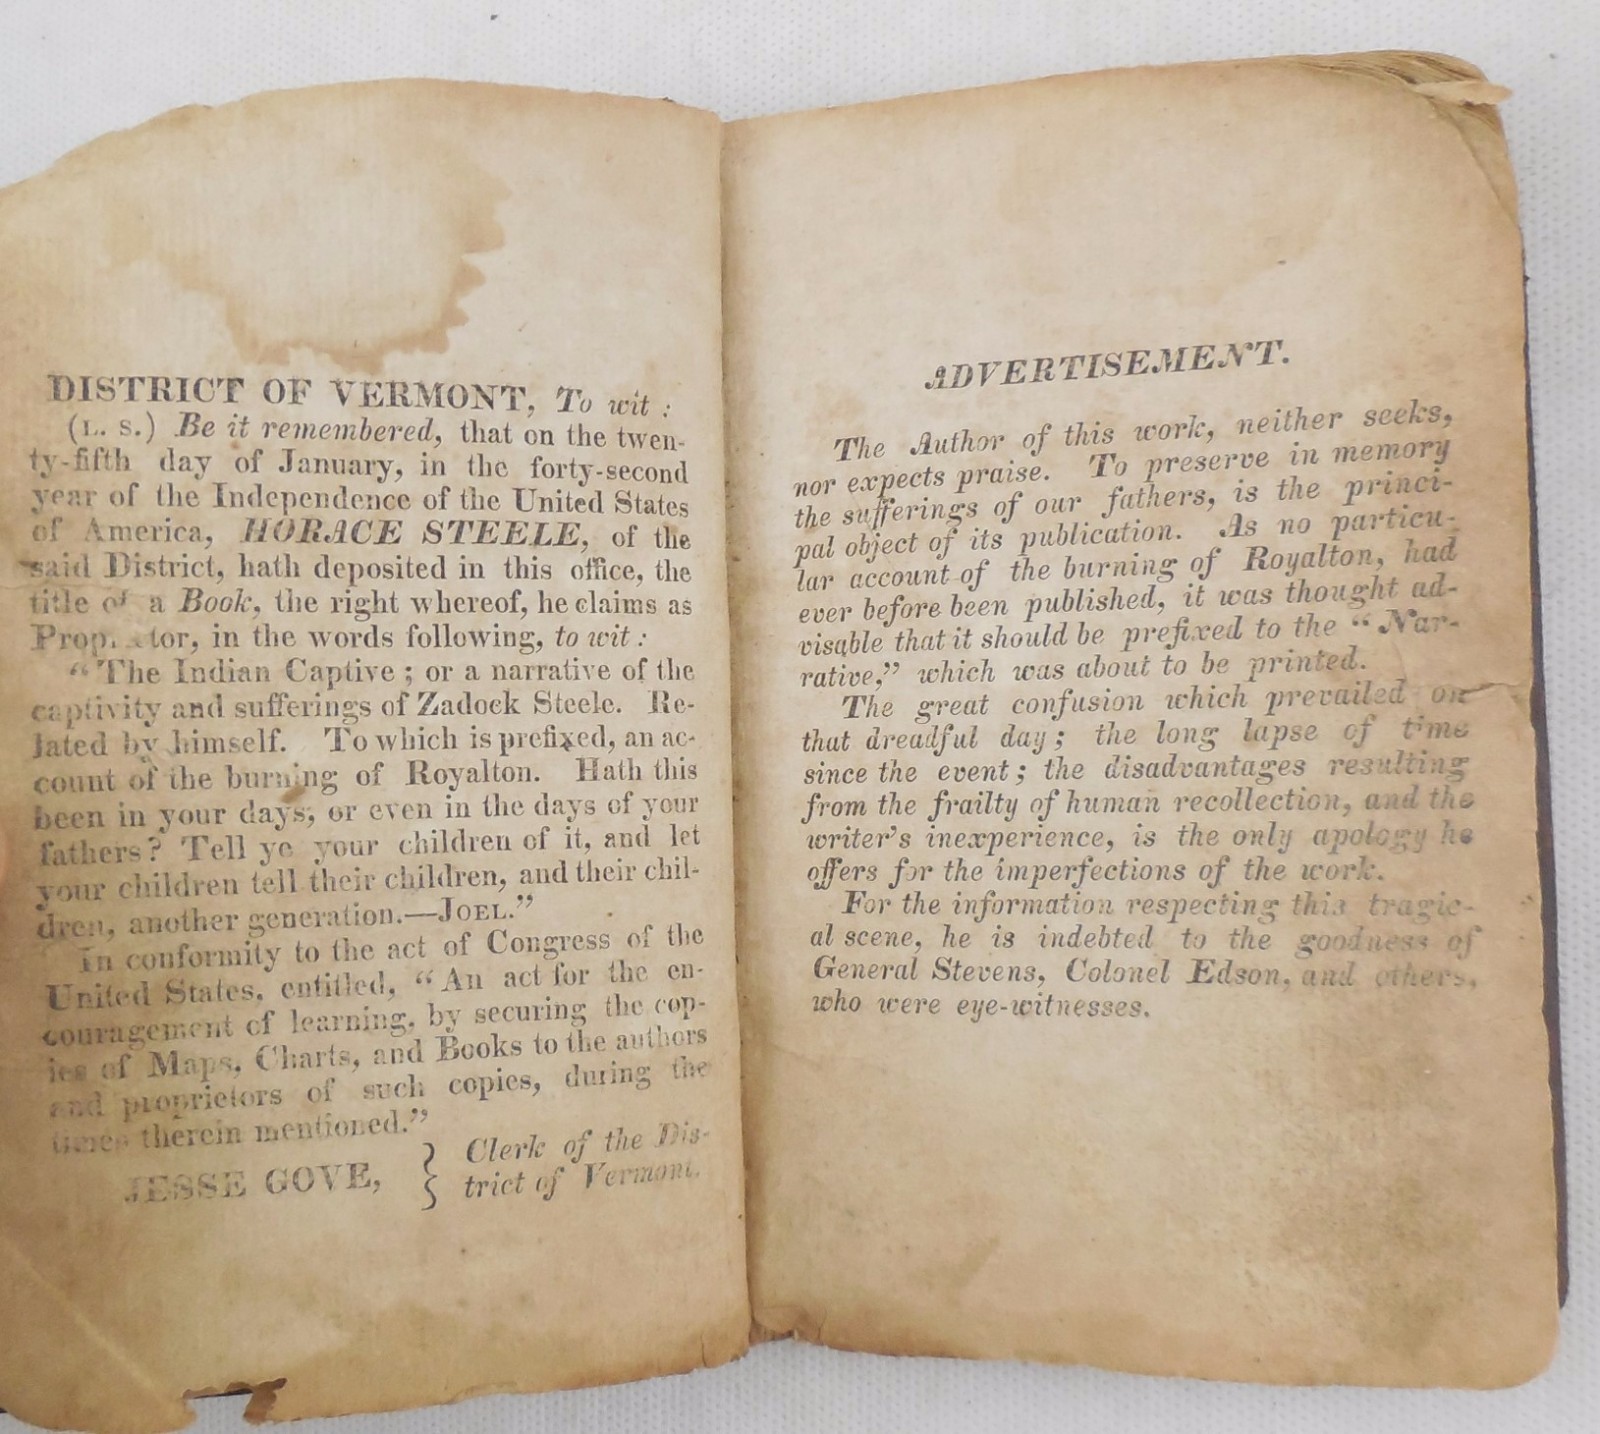 DISTRICT OF VERMONT, To wit :
(L. S.) Be it remembered, that on the twen-
ty-fifth day of January, in the forty-second
year of the Independence of the United States
of America, HORACE STEELE, of the
said District, hath deposited in this office, the
title of a Book, the right whereof, he claims as
Proprietor, in the words following, to wit :
"The Indian Captive ; or a narrative of the
captivity and sufferings of Zadock Steele. Re-
lated by himself. To which is prefixed, an ac-
count of the burning of Royalton. Hath this
been in your days, or even in the days of your
fathers? Tell ye your children of it, and let
your children tell their children, and their chil-
dren, another generation.—JOEL."
In conformity to the act of Congress of the
United States, entitled, "An act for the en-
couragement of learning, by securing the cop-
ies of Maps, Charts, and Books to the authors
and proprietors of such copies, during the
times therein mentioned."
JESSE GOVE, } Clerk of the Dis-
trict of Vermont.
ADVERTISEMENT.
The Author of this work, neither seeks,
nor expects praise. To preserve in memory
the sufferings of our fathers, is the princi-
pal object of its publication. As no particu-
lar account of the burning of Royalton, had
ever before been published, it was thought ad-
visable that it should be prefixed to the "Nar-
rative," which was about to be printed.
The great confusion which prevailed on
that dreadful day ; the long lapse of time
since the event ; the disadvantages resulting
from the frailty of human recollection, and the
writer's inexperience, is the only apology he
offers for the imperfections of the work.
For the information respecting this tragic-
al scene, he is indebted to the goodness of
General Stevens, Colonel Edson, and others,
who were eye-witnesses.